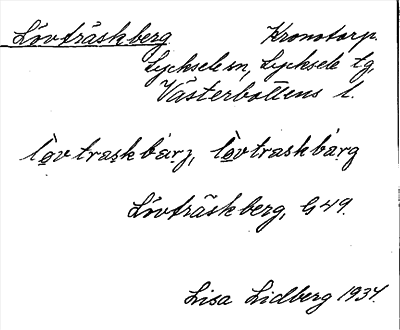 Lövträskberg Kronotorp.
Lycksele sn, Lycksele tg,
Västerbottens l.
lòv traskbàrj, lòvtraskbàrg
Lövträskberg, G 49.
Lisa Lidberg 1937.